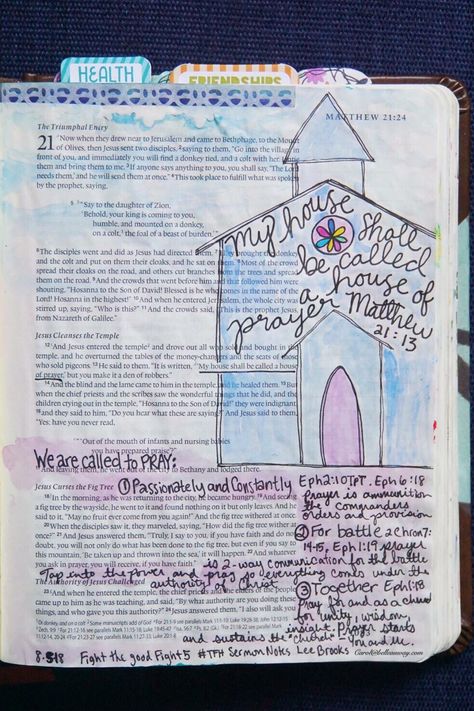 HEALTH
FRIENDSHIPS
MATTHEW 21:24
The Triumphal Entry
21 ¹Now when they drew near to Jerusalem and came to Bethphage, to the Mount
of Olives, then Jesus sent two disciples, ²saying to them, "Go into the village in
front of you, and immediately you will find a donkey tied, and a colt with her.
them and bring them to me. ³If anyone says anything to you, you shall say, 'The Lord
needs them,' and he will send them at once." ⁴This took place to fulfill what was spoken
by the prophet, saying,
⁵ "Say to the daughter of Zion,
'Behold, your king is coming to you,
humble, and mounted on a donkey,
on a colt, the foal of a beast of burden.'"
⁶The disciples went and did as Jesus had directed them. ⁷They brought the donkey
and the colt and put on them their cloaks, and he sat on them. ⁸Most of the crowd
spread their cloaks on the road, and others cut branches from the trees and spread
them on the road. ⁹And the crowds that went before him and that followed him were
shouting, "Hosanna to the Son of David! Blessed is he who comes in the name of the
Lord! Hosanna in the highest!" ¹⁰And when he entered Jerusalem, the whole city was
stirred up, saying, "Who is this?" ¹¹And the crowds said, "This is the prophet Jesus,
from Nazareth of Galilee."
my house shall
be called
a house of
prayer Matthew
21:13
Jesus Cleanses the Temple
¹²And Jesus entered the temple and drove out all who sold and bought in the
temple, and he overturned the tables of the money-changers and the seats of those
who sold pigeons. ¹³He said to them, "It is written, 'My house shall be called a house
of prayer,' but you make it a den of robbers."
¹⁴And the blind and the lame came to him in the temple, and he healed them. ¹⁵But
when the chief priests and the scribes saw the wonderful things that he did, and the
children crying out in the temple, "Hosanna to the Son of David!" they were indignant,
¹⁶and they said to him, "Do you hear what these are saying?" And Jesus said to them,
"Yes; have you never read,
"'Out of the mouth of infants and nursing babies
you have prepared praise'?"
We are called to PRAY:
And leaving them, he went out of the city to Bethany and lodged there.
Jesus Curses the Fig Tree
① Passionately and Constantly Eph 2:10 TPT. Eph 6:18
Prayer is ammunition
the commanders
orders and provision
¹⁸In the morning, as he was returning to the city, he became hungry. ¹⁹And seeing
a fig tree by the wayside, he went to it and found nothing on it but only leaves. And he
said to it, "May no fruit ever come from you again!" And the fig tree withered at once.
²⁰When the disciples saw it, they marveled, saying, "How did the fig tree wither at
once?" ²¹And Jesus answered them, "Truly, I say to you, if you have faith and do not
doubt, you will not only do what has been done to the fig tree, but even if you say to
this mountain, 'Be taken up and thrown into the sea,' it will happen. ²²And whatever
you ask in prayer, you will receive, if you have faith."
② For battle 2 Chron 7:
14-5, Eph 1:19 prayer
is 2-way communication for the battle
Tap into the power and pray so everything comes under the
authority of Christ
The Authority of Jesus Challenged
²³And when he entered the temple, the chief priests and the elders of the people
came up to him as he was teaching, and said, "By what authority are you doing these
things, and who gave you this authority?" ²⁴Jesus answered them, "I also will ask you
③ Together Eph 1:18
Pray for and as a church
for unity, wisdom,
insight. Prayer starts
and sustains the "Church" - You and me.
8·5·18 Fight the good Fight 5 #TFH Sermon Notes Lee Brooks